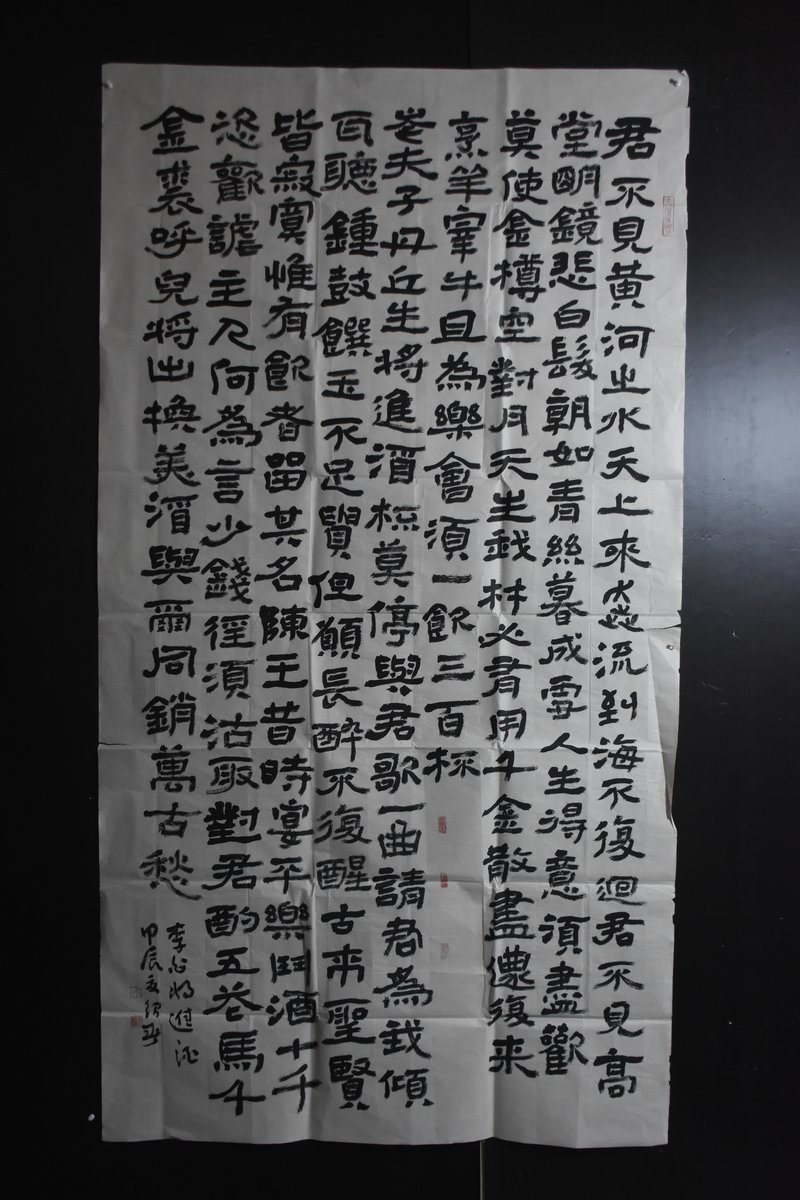 君不見黃河之水天上來奔流到海不復迴君不見高
堂明鏡悲白髮朝如青絲暮成雪人生得意須盡歡
莫使金樽空對月天生我材必有用千金散盡還復来
烹羊宰牛且為樂會須一飲三百杯
岑夫子丹丘生將進酒杯莫停與君歌一曲請君為我傾
耳聽鍾鼓饌玉不足貴但願長醉不復醒古来聖賢
皆寂寞惟有飲者留其名陳王昔時宴平樂鬥酒十千
恣歡謔主人何為言少錢徑須沽取對君酌五花馬千
金裘呼兒將出換美酒與爾同銷萬古愁
李白將進酒
甲辰